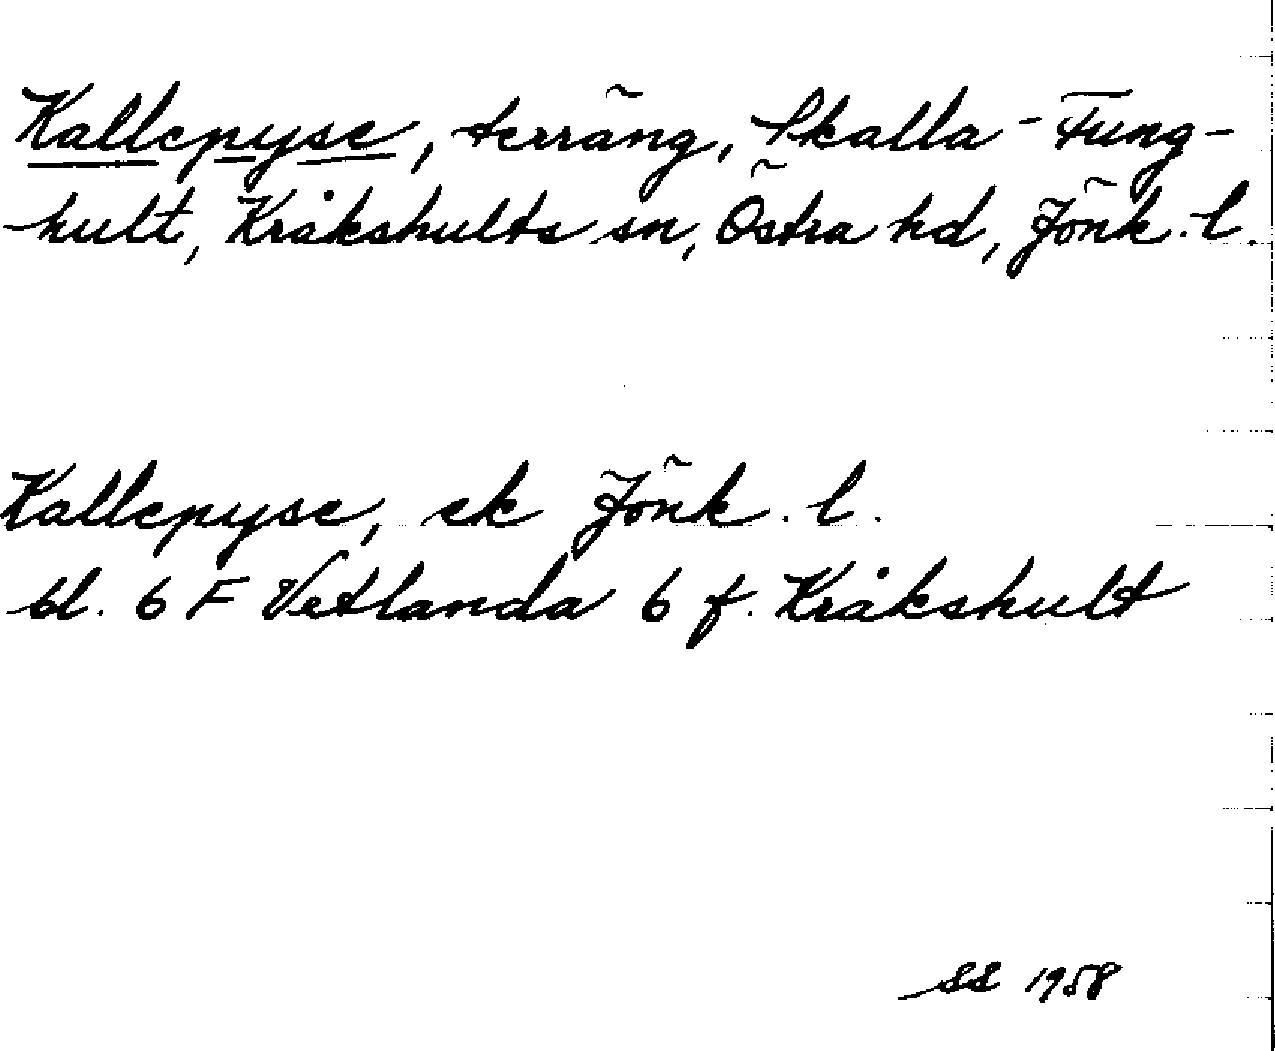 Kallepyse, terräng, Skalla-Fung-
hult, Kråkshults sn, Östra hd, Jönk. l.
Kallepyse, ek Jönk. l.
bl. 6 F Vetlanda 6 f. Kråkshult
SS 1958